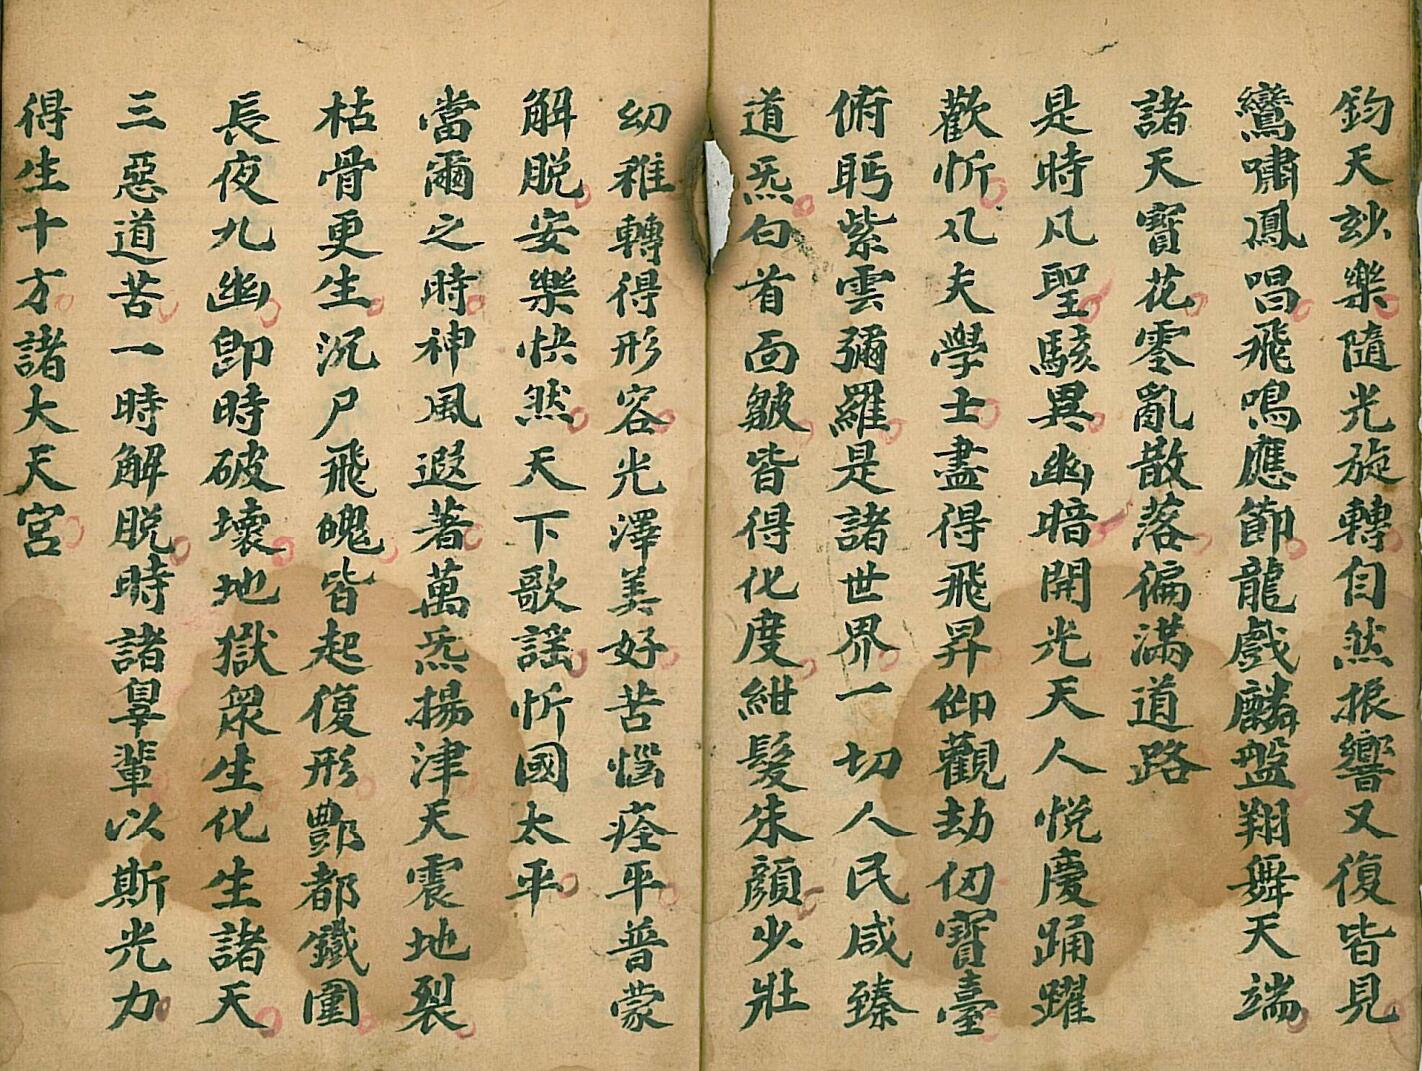 鈞天玅樂隨光旋轉自然振響又復皆見
鸞嘯鳳唱飛鳴應節龍戲麟盤翔舞天端
諸天寶花零亂散落徧滿道路
是時凡聖駭異幽暗開光天人悅慶踊躍
歡忻凡夫學士盡得飛昇仰觀劫仞寶臺
俯眄紫雲彌羅是諸世界一切人民咸臻
道炁白首面皺皆得化度紺髮朱顏少壯
幼稚轉得形容光澤美好苦惱痊平普蒙
解脫安樂快然天下歌謡忻國太平
當爾之時神風遐著萬炁揚津天震地裂
枯骨更生沉尸飛魄皆起復形酆都鐵圍
長夜九幽卽時破壞地獄眾生化生諸天
三惡道苦一時解脫時諸辠輩以斯光力
得生十方諸大天宮